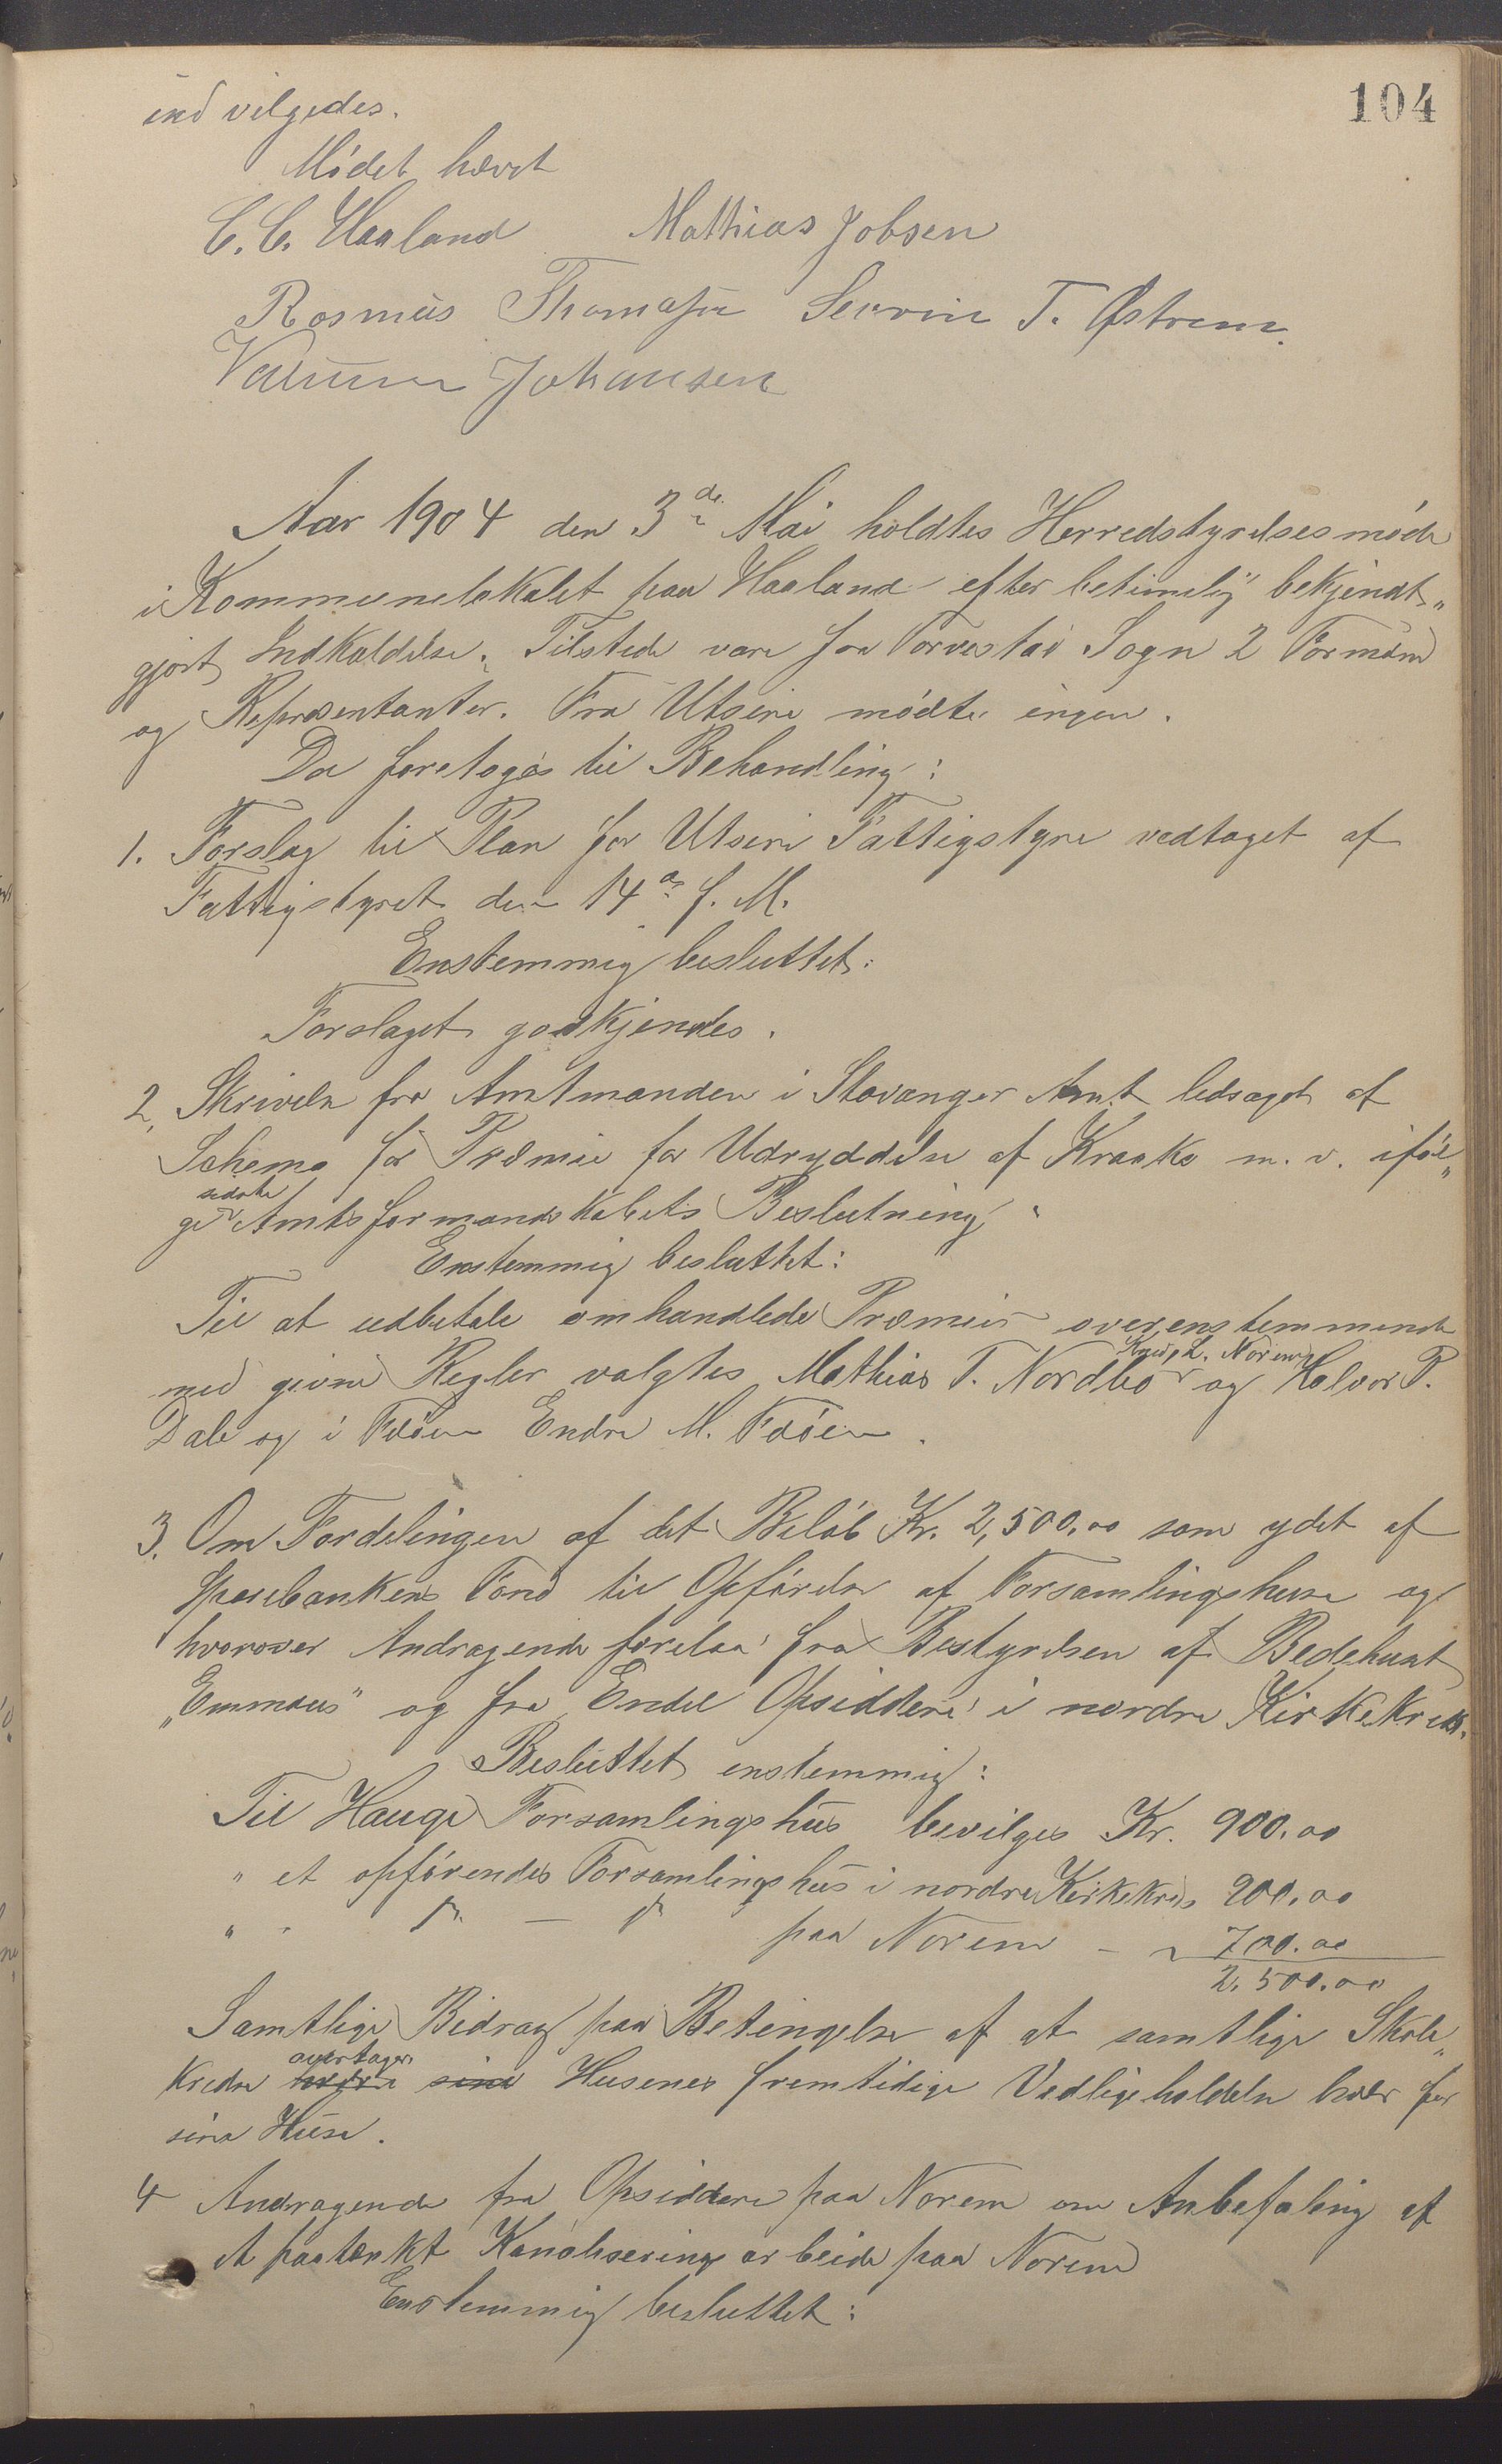 104
indvilgedes.
Mödet hævet
C. C. Haaland Mathias Jobsen
Rasmus Thomassen Severin T. Østrem.
Johansen
Aar 1904 den 3de Mai holdtes Herredstyrelsesmöde
i Kommunelokalet paa Haaland efter betimelig bekjendt„
gjort Indkaldelse. Tilstede vare fra Torvestad Sogn 2 Formænd
og Repræsentanter. Fra Utsire mödte ingen.
Da foretoges til Behandling:
1. Forslag til Plan for Utsire Fattigstyre vedtaget af
Fattigstyret den 14de f. M.
Enstemmig besluttet:
Forslaget godkjendes.
2. Skrivelse fra Amtmanden i Stavanger Amt ledsaget af
Schema for Præmie for Udryddelse af Kraake m. v. iföl„
ge sidste Amtsformandskabets Beslutning.
Enstemmig besluttet:
Til at udbetale omhandlede Præmier overenstemmende
med givne Regler valgtes Mathias T. Nordbö, L. Norem og Halvor P.
Dale og i Fæöen Endre M. Fæöen.
3. Om Fordelingen af det Belöb Kr. 2,500.00 som ydet af
Sparebankens Fond til Opförelse af Forsamlingshuse og
hvorover Andragende forelaa fra Bestyrelsen af Bedehuset
„Emmaus" og fra Endel Opsiddere i nordre Kirkekreds.
Besluttet enstemmig:
Til Hauge Forsamlingshus bevilges Kr. 900.00
" et opförendes Forsamlingshus i nordre Kirkekreds 900.00
" - do — do paa Norem - " 700.00
2,500.00
Samtlige Bidrag paa Betingelse af at samtlige Skole„
kredse overtager sine Husenes fremtidige Vedligeholdelse hver for
sine Huse.
4 Andragende fra Opsiddere paa Norem om Anbefaling af
et paatænkt Kanaliseringsarbeide paa Norem
Enstemmig besluttet: